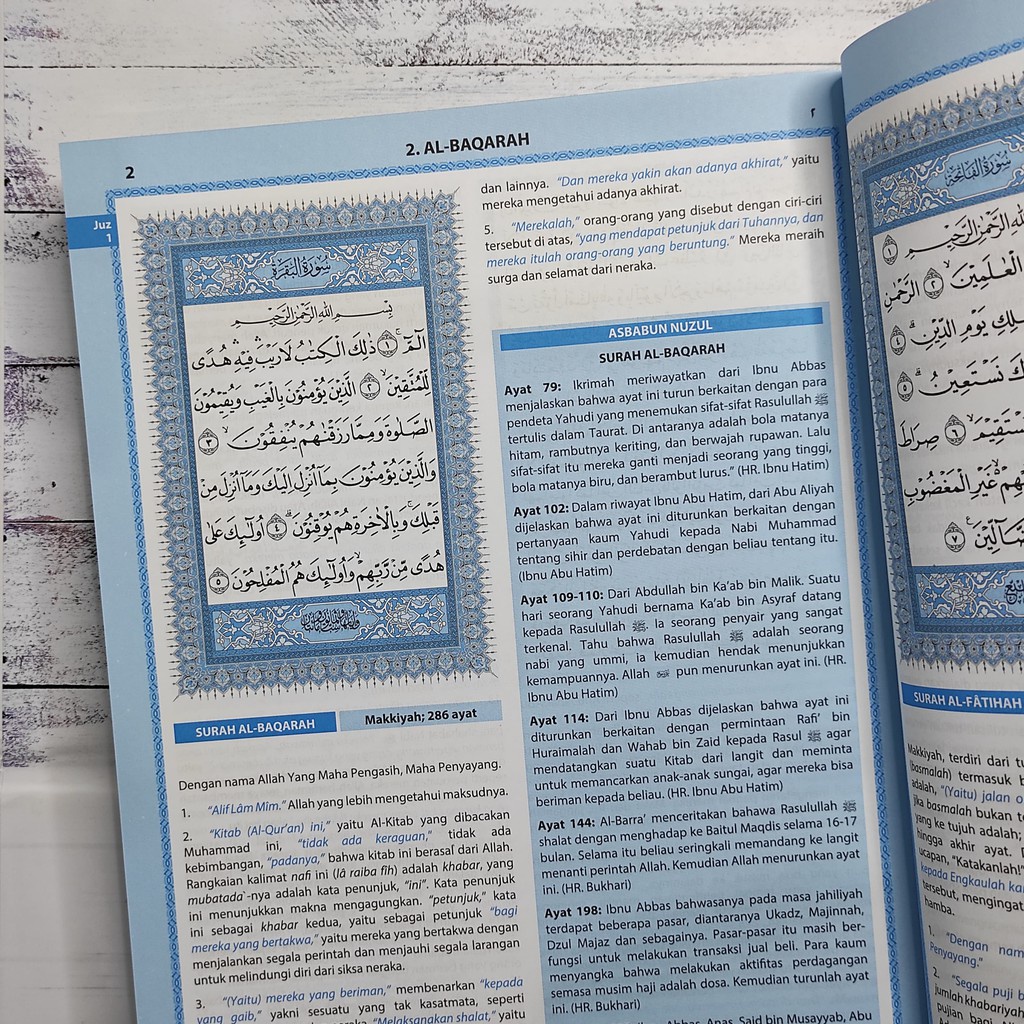 2
2. AL-BAQARAH
٢
Juz
1
سُورَةُ الْبَقَرَةِ
بِسْمِ اللهِ الرَّحْمٰنِ الرَّحِيْمِ
الۤمّۤ ۚ ١ ذٰلِكَ الْكِتٰبُ لَا رَيْبَ ۛ فِيْهِ ۛ هُدًى
لِّلْمُتَّقِيْنَ ۙ ٢ الَّذِيْنَ يُؤْمِنُوْنَ بِالْغَيْبِ وَيُقِيْمُوْنَ
الصَّلٰوةَ وَمِمَّا رَزَقْنٰهُمْ يُنْفِقُوْنَ ۙ ٣
وَالَّذِيْنَ يُؤْمِنُوْنَ بِمَآ اُنْزِلَ اِلَيْكَ وَمَآ اُنْزِلَ مِنْ
قَبْلِكَ ۚ وَبِالْاٰخِرَةِ هُمْ يُوْقِنُوْنَ ۗ ٤ اُولٰۤىِٕكَ عَلٰى
هُدًى مِّنْ رَّبِّهِمْ ۙ وَاُولٰۤىِٕكَ هُمُ الْمُفْلِحُوْنَ ٥
SURAH AL-BAQARAH
Makkiyah; 286 ayat
Dengan nama Allah Yang Maha Pengasih, Maha Penyayang.
1. “Alif Lâm Mîm.” Allah yang lebih mengetahui maksudnya.
2. “Kitab (Al-Qur’an) ini,” yaitu Al-Kitab yang dibacakan
Muhammad ini, “tidak ada keraguan,” tidak ada
kebimbangan, “padanya,” bahwa kitab ini berasal dari Allah.
Rangkaian kalimat nafi ini (lâ raiba fîh) adalah khabar, yang
mubatada`-nya adalah kata penunjuk, “ini”. Kata penunjuk
ini menunjukkan makna mengagungkan. “petunjuk,” kata
ini sebagai khabar kedua, yaitu sebagai petunjuk “bagi
mereka yang bertakwa,” yaitu mereka yang bertakwa dengan
menjalankan segala perintah dan menjauhi segala larangan
untuk melindungi diri dari siksa neraka.
3. “(Yaitu) mereka yang beriman,” membenarkan “kepada
yang gaib,” yakni sesuatu yang tak kasatmata, seperti
“Melaksanakan shalat,” yaitu
dan lainnya. “Dan mereka yakin akan adanya akhirat,” yaitu
mereka mengetahui adanya akhirat.
5. “Merekalah,” orang-orang yang disebut dengan ciri-ciri
tersebut di atas, “yang mendapat petunjuk dari Tuhannya, dan
mereka itulah orang-orang yang beruntung.” Mereka meraih
surga dan selamat dari neraka.
ASBABUN NUZUL
SURAH AL-BAQARAH
Ayat 79: Ikrimah meriwayatkan dari Ibnu Abbas
menjalaskan bahwa ayat ini turun berkaitan dengan para
pendeta Yahudi yang menemukan sifat-sifat Rasulullah ﷺ
tertulis dalam Taurat. Di antaranya adalah bola matanya
hitam, rambutnya keriting, dan berwajah rupawan. Lalu
sifat-sifat itu mereka ganti menjadi seorang yang tinggi,
bola matanya biru, dan berambut lurus.” (HR. Ibnu Hatim)
Ayat 102: Dalam riwayat Ibnu Abu Hatim, dari Abu Aliyah
dijelaskan bahwa ayat ini diturunkan berkaitan dengan
pertanyaan kaum Yahudi kepada Nabi Muhammad
tentang sihir dan perdebatan dengan beliau tentang itu.
(Ibnu Abu Hatim)
Ayat 109-110: Dari Abdullah bin Ka’ab bin Malik. Suatu
hari seorang Yahudi bernama Ka’ab bin Asyraf datang
kepada Rasulullah ﷺ. Ia seorang penyair yang sangat
terkenal. Tahu bahwa Rasulullah ﷺ adalah seorang
nabi yang ummi, ia kemudian hendak menunjukkan
kemampuannya. Allah pun menurunkan ayat ini. (HR.
Ibnu Abu Hatim)
Ayat 114: Dari Ibnu Abbas dijelaskan bahwa ayat ini
diturunkan berkaitan dengan permintaan Rafi’ bin
Huraimalah dan Wahab bin Zaid kepada Rasul ﷺ agar
mendatangkan suatu Kitab dari langit dan meminta
untuk memancarkan anak-anak sungai, agar mereka bisa
beriman kepada beliau. (HR. Ibnu Abu Hatim)
Ayat 144: Al-Barra’ menceritakan bahawa Rasulullah ﷺ
shalat dengan menghadap ke Baitul Maqdis selama 16-17
bulan. Selama itu beliau seringkali memandang ke langit
menanti perintah Allah. Kemudian Allah menurunkan ayat
ini. (HR. Bukhari)
Ayat 198: Ibnu Abbas bahwasanya pada masa jahiliyah
terdapat beberapa pasar, diantaranya Ukadz, Majinnah,
Dzul Majaz dan sebagainya. Pasar-pasar itu masih ber-
fungsi untuk melakukan transaksi jual beli. Para kaum
menyangka bahwa melakukan aktifitas perdagangan
semasa musim haji adalah dosa. Kemudian turunlah ayat
ini. (HR. Bukhari)
Abbas, Anas, Said bin Musayyab, Abu
سُورَةُ الْفَاتِحَةِ
اللهِ الرَّحْمٰنِ الرَّحِيْمِ ١
الْعٰلَمِيْنَ ٢ الرَّحْمٰنِ
مٰلِكِ يَوْمِ الدِّيْنِ ٤
نَسْتَعِيْنُ ٥
٦ صِرَاطَ
غَيْرِ الْمَغْضُوْبِ
٧
SURAH AL-FÂTIHAH
Makkiyah, terdiri dari
(basmalah) termasuk
adalah, “(Yaitu) jalan
jika basmalah bukan
yang ke tujuh adalah;
hingga akhir ayat.
ucapan, “Katakanlah!”
kepada Engkaulah
tersebut, mengingat
hamba.
1. “Dengan
Penyayang.”
2. “Segala puji
jumlah khabariyah
pujian bagi